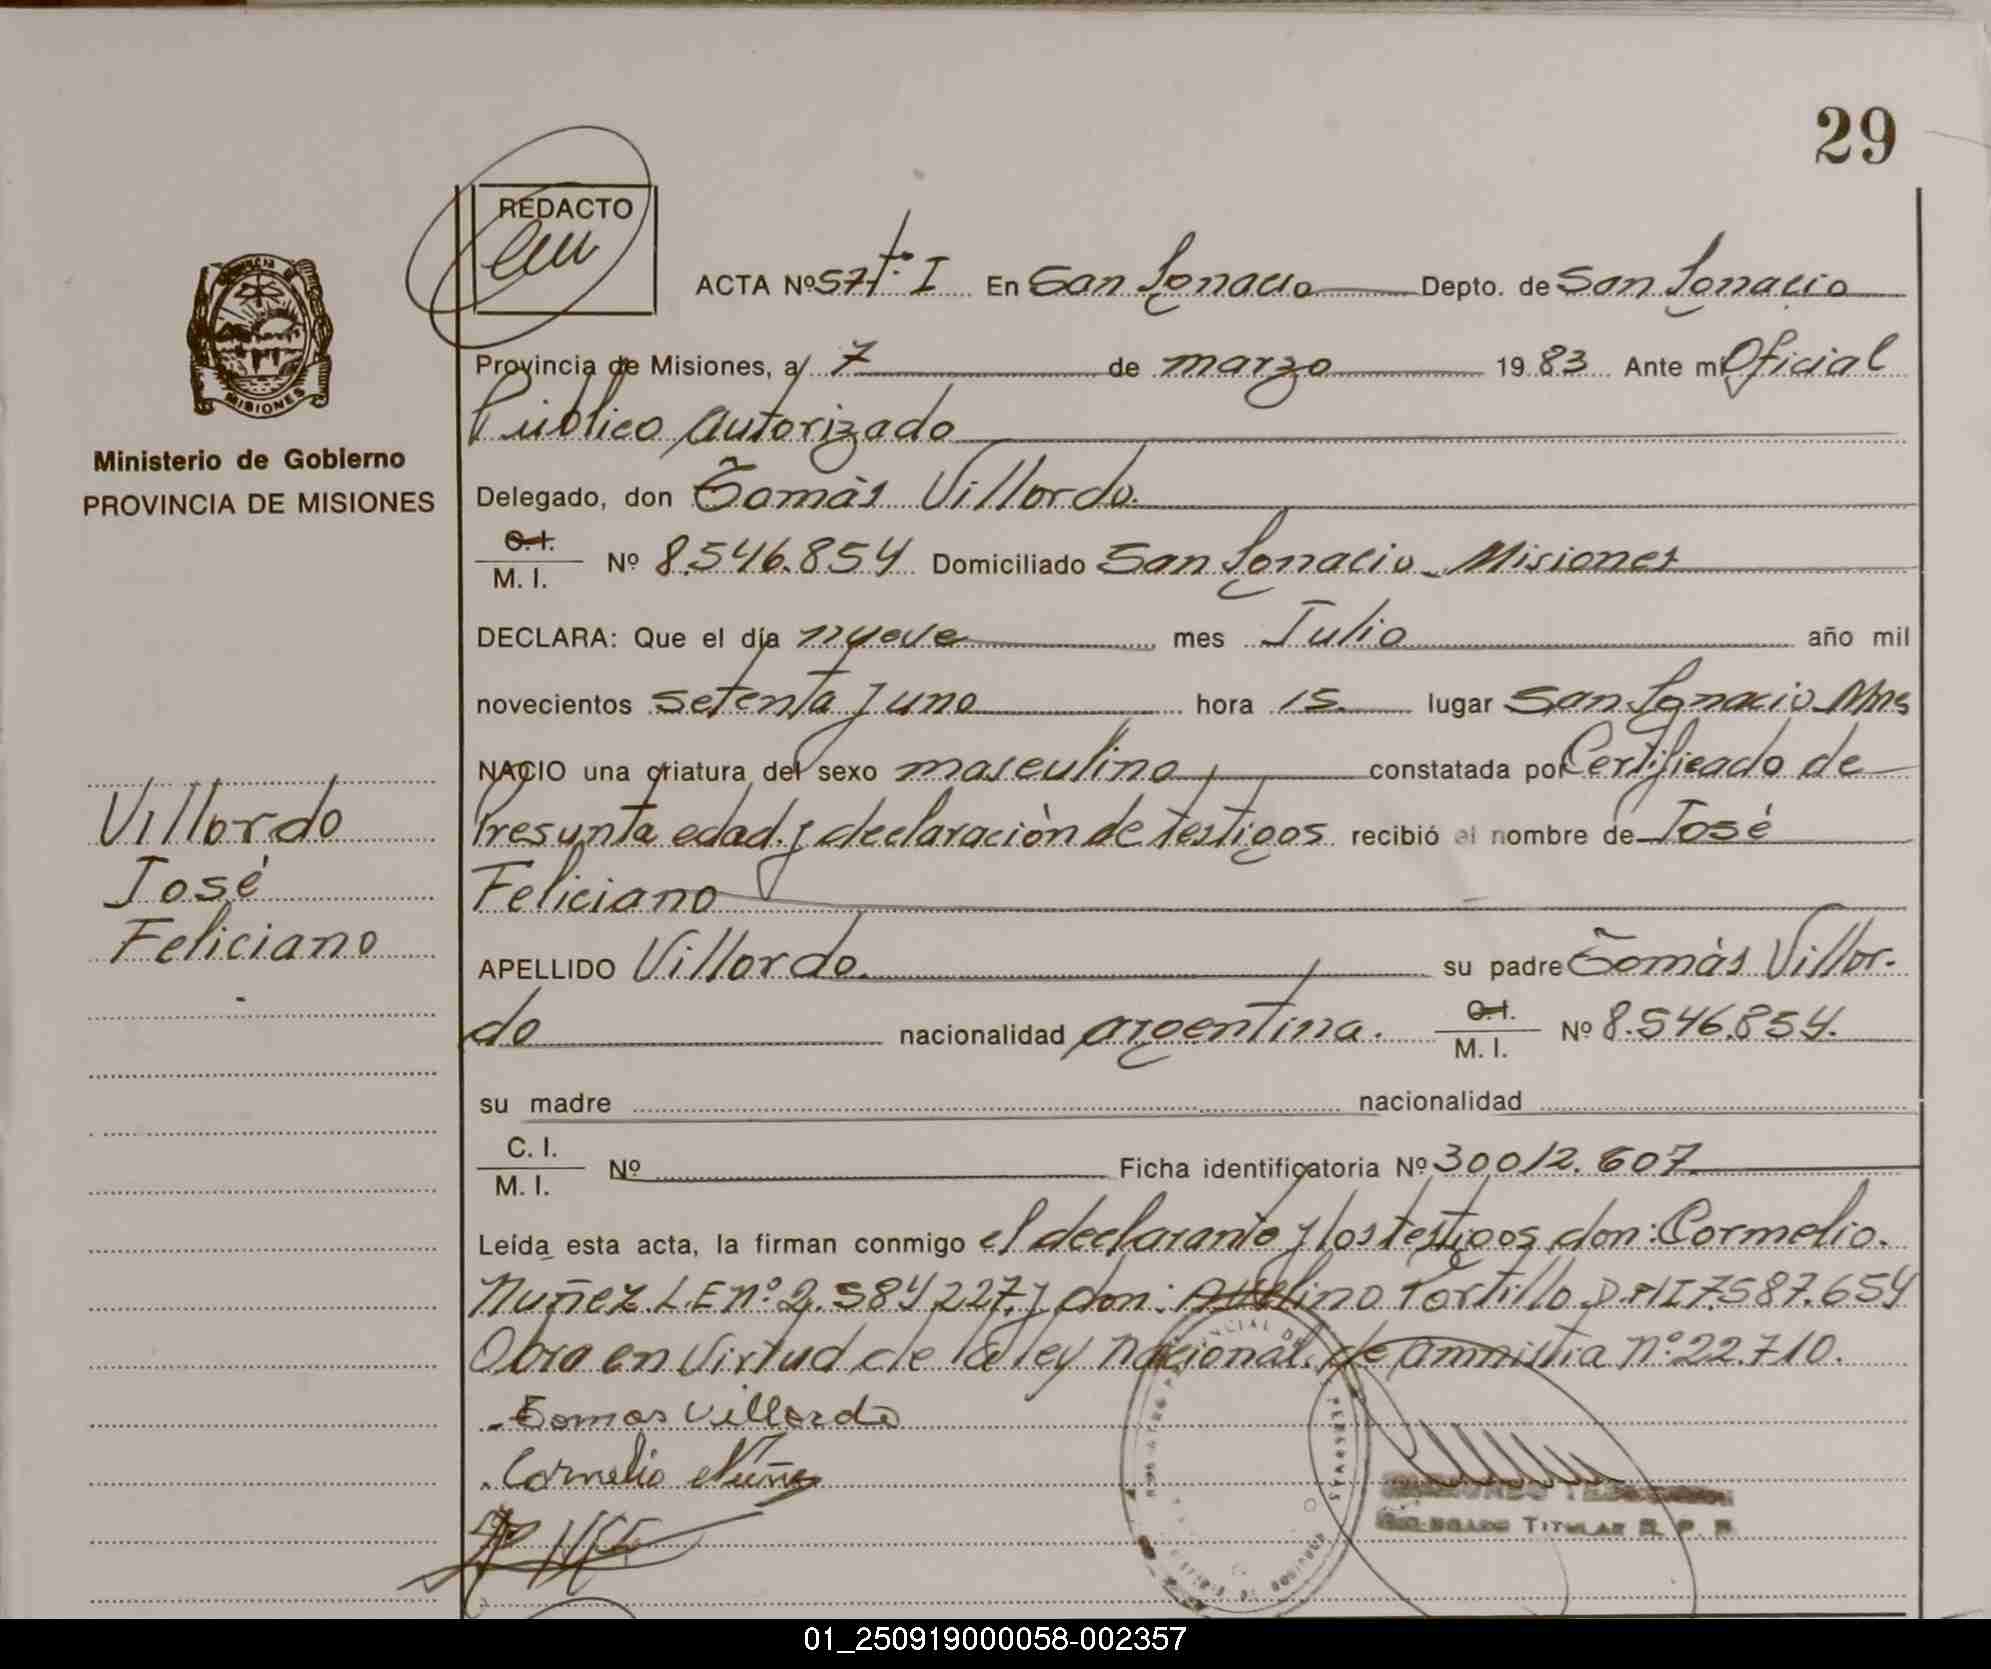 29
REDACTO
ACTA Nº 57 tº I En San Ignacio Depto. de San Ignacio
Provincia de Misiones, a 7 de marzo 1983 Ante mi Oficial
Público Autorizado
Delegado, don Tomás Villordo.
C. I.
M. I. Nº 8.546.854 Domiciliado San Ignacio - Misiones
DECLARA: Que el día nueve mes Julio año mil
novecientos setenta y uno hora 15 lugar San Ignacio Mnes
NACIO una criatura del sexo masculino constatada por Certificado de
Presunta edad y declaración de testigos recibió el nombre de José
Feliciano
APELLIDO Villordo. su padre Tomás Villor-
do nacionalidad argentina. C. I.
M. I. Nº 8.546.854.
su madre nacionalidad
C. I.
M. I. Nº Ficha identificatoria Nº 30012.607
Leída esta acta, la firman conmigo el declarante y los testigos don: Cornelio
Nuñez L.E nº 2.584 227 y don: Avelino Portillo D.N.I 7.587.654
Obra en virtud de la ley nacional de amnistia nº 22.710.
Tomas Villordo
Cornelio Núñez
DELEGADO TITULAR R. P. P.
Ministerio de Gobierno
PROVINCIA DE MISIONES
MISIONES
Villordo
José
Feliciano
01_250919000058-002357